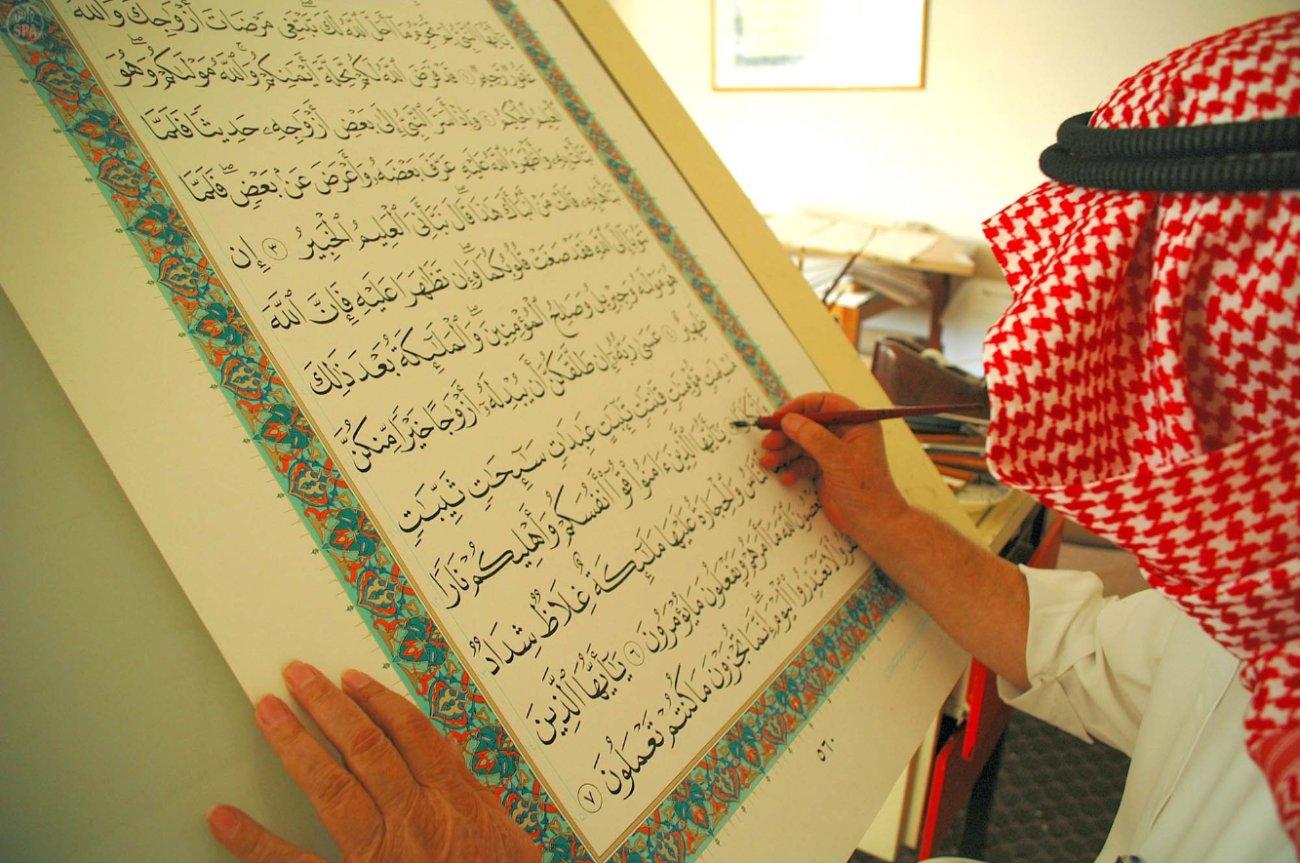 يَٰٓأَيُّهَا ٱلنَّبِيُّ لِمَ تُحَرِّمُ مَآ أَحَلَّ ٱللَّهُ لَكَۖ تَبْتَغِي مَرْضَاتَ أَزْوَٰجِكَۚ وَٱللَّهُ
غَفُورٌ رَّحِيمٌ ١ قَدْ فَرَضَ ٱللَّهُ لَكُمْ تَحِلَّةَ أَيْمَٰنِكُمْۚ وَٱللَّهُ مَوْلَىٰكُمْۖ وَهُوَ
ٱلْعَلِيمُ ٱلْحَكِيمُ ٢ وَإِذْ أَسَرَّ ٱلنَّبِيُّ إِلَىٰ بَعْضِ أَزْوَٰجِهِۦ حَدِيثًا فَلَمَّا
نَبَّأَتْ بِهِۦ وَأَظْهَرَهُ ٱللَّهُ عَلَيْهِ عَرَّفَ بَعْضَهُۥ وَأَعْرَضَ عَنۢ بَعْضٍۖ فَلَمَّا
نَبَّأَهَا بِهِۦ قَالَتْ مَنْ أَنۢبَأَكَ هَٰذَاۖ قَالَ نَبَّأَنِيَ ٱلْعَلِيمُ ٱلْخَبِيرُ ٣ إِن
تَتُوبَآ إِلَى ٱللَّهِ فَقَدْ صَغَتْ قُلُوبُكُمَاۖ وَإِن تَظَٰهَرَا عَلَيْهِ فَإِنَّ ٱللَّهَ
هُوَ مَوْلَىٰهُ وَجِبْرِيلُ وَصَٰلِحُ ٱلْمُؤْمِنِينَۖ وَٱلْمَلَٰٓئِكَةُ بَعْدَ ذَٰلِكَ
ظَهِيرٌ ٤ عَسَىٰ رَبُّهُۥٓ إِن طَلَّقَكُنَّ أَن يُبْدِلَهُۥٓ أَزْوَٰجًا خَيْرًا مِّنكُنَّ
مُسْلِمَٰتٍ مُّؤْمِنَٰتٍ قَٰنِتَٰتٍ تَٰٓئِبَٰتٍ عَٰبِدَٰتٍ سَٰٓئِحَٰتٍ ثَيِّبَٰتٍ
يَٰٓأَيُّهَا ٱلَّذِينَ ءَامَنُوا۟ قُوٓا۟ أَنفُسَكُمْ وَأَهْلِيكُمْ نَارًا
ٱلنَّاسُ وَٱلْحِجَارَةُ عَلَيْهَا مَلَٰٓئِكَةٌ غِلَاظٌ شِدَادٌ
يَعْصُونَ ٱللَّهَ مَآ أَمَرَهُمْ وَيَفْعَلُونَ مَا يُؤْمَرُونَ ٦ يَٰٓأَيُّهَا ٱلَّذِينَ
كَفَرُوا۟ لَا تَعْتَذِرُوا۟ ٱلْيَوْمَۖ إِنَّمَا تُجْزَوْنَ مَا كُنتُمْ تَعْمَلُونَ ٧
٥٦٠
SPA